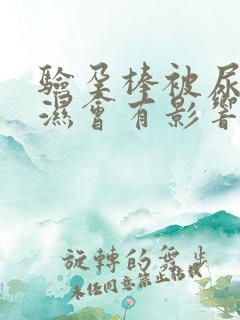 驗孕棒被尿
濕會有影響
旋轉的舞步
未經同意禁止轉載